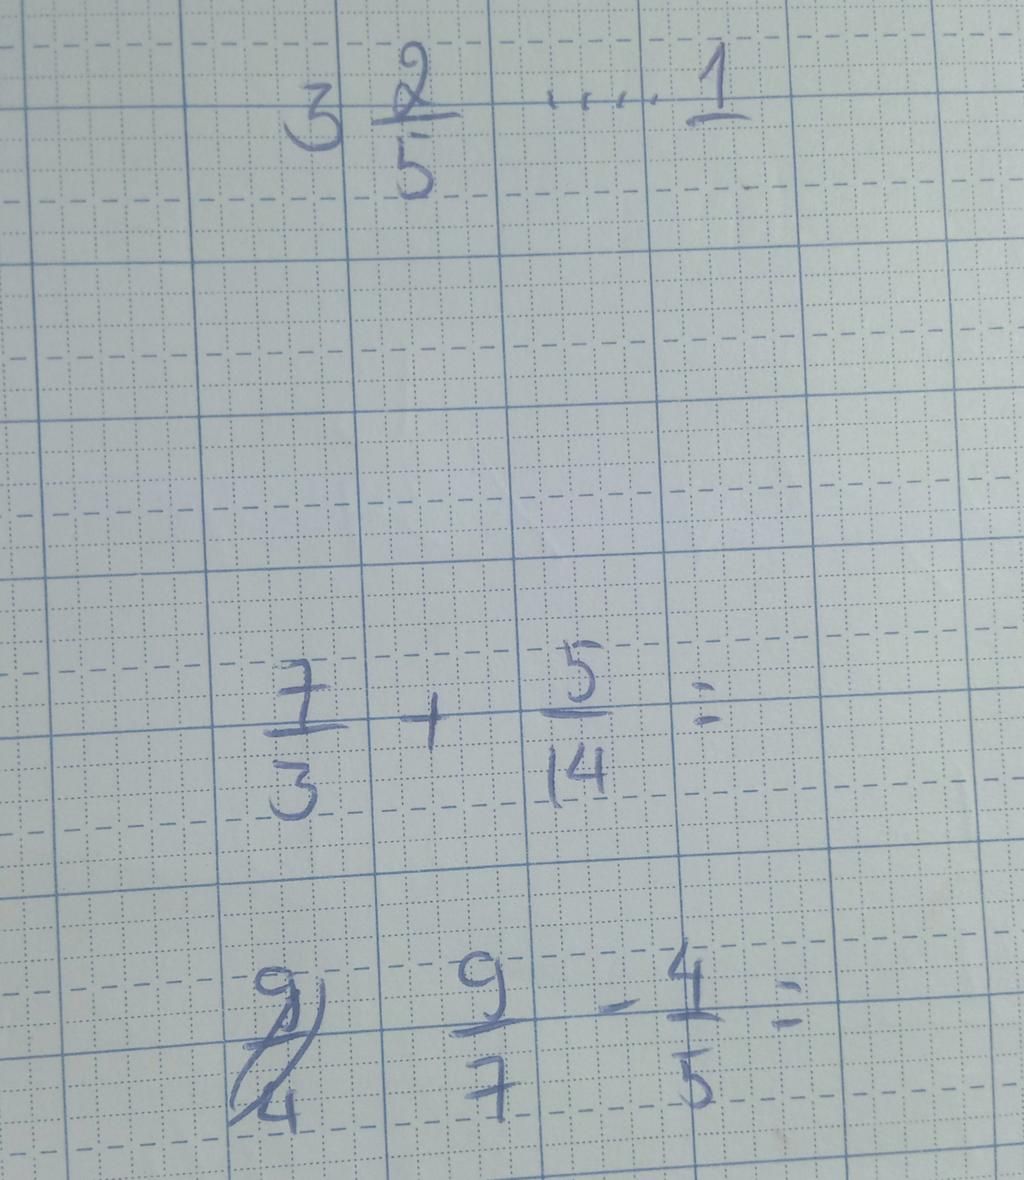 3 2/5 .... 1/
7/3 + 5/14 =
9/7 - 4/5 =